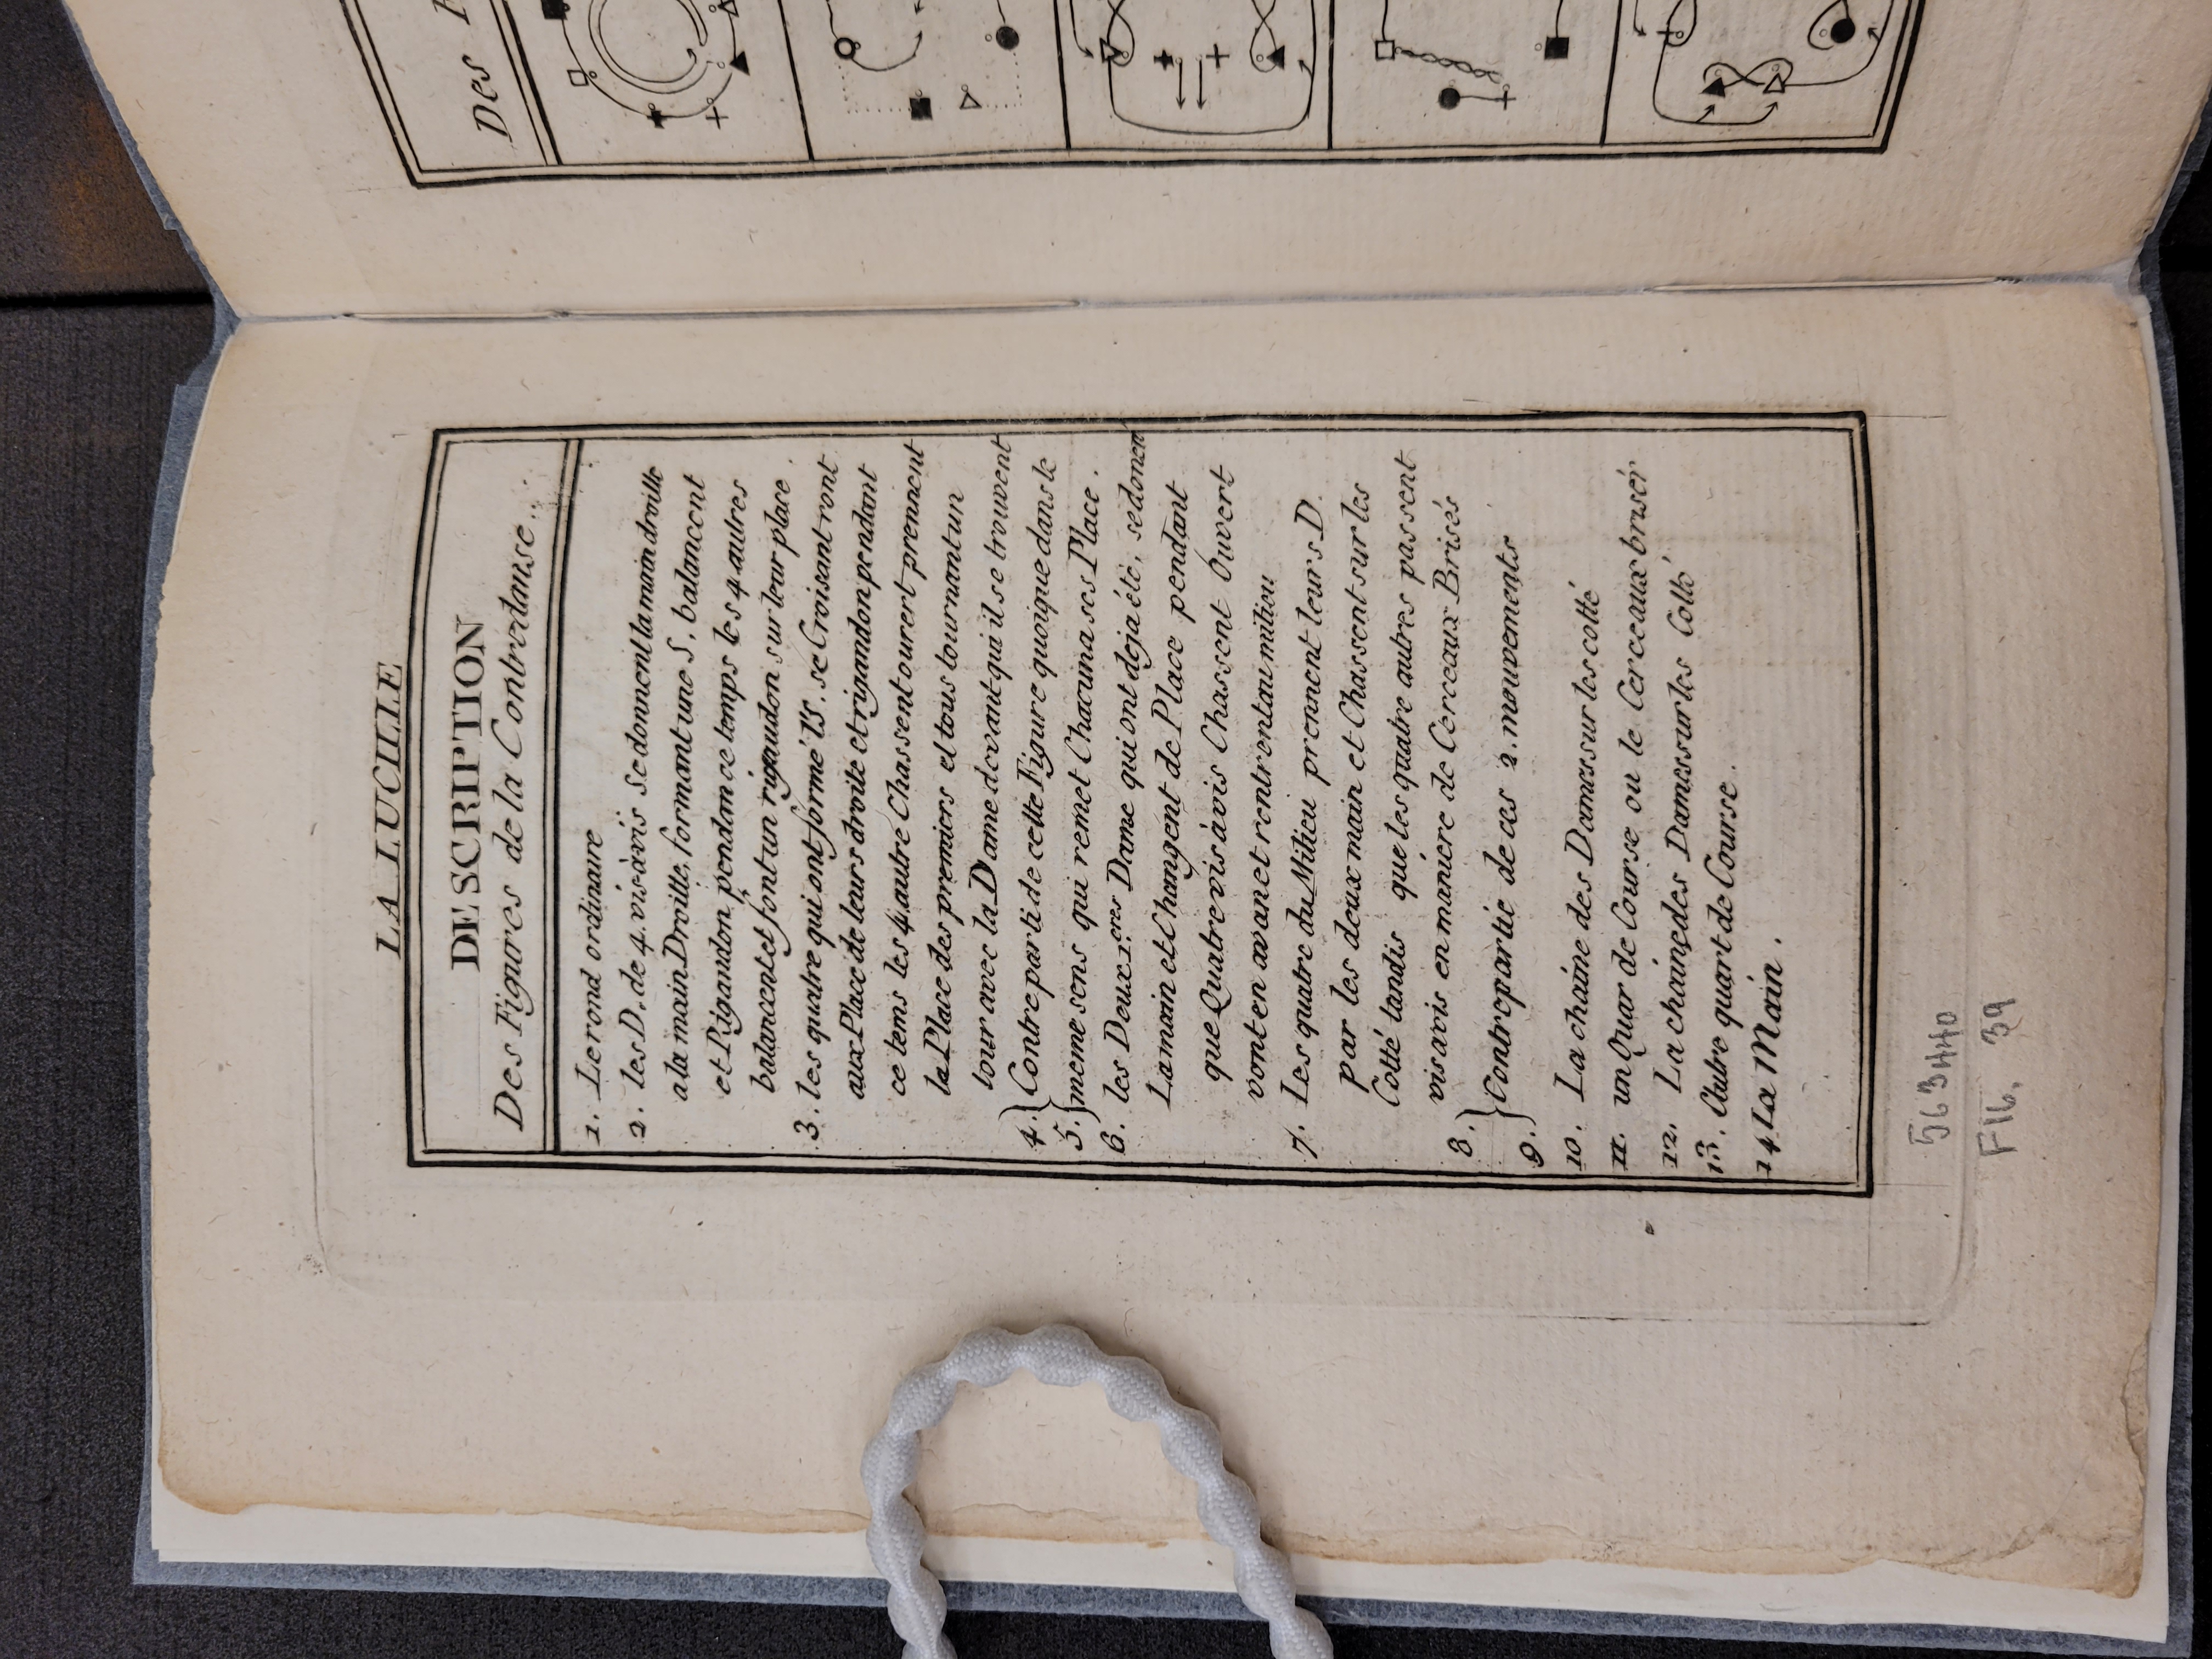 LA LUCILLE
DESCRIPTION
Des Figures de la Contredanse...
1. Le rond ordinaire
2. les D. de 4. vis-à-vis se donnent la main droitte
a la main Droitte, formant une S, balancent
et Rigaudon, pendance temps les 4 autres
balancent et font un rigaudon sur leur place.
3. les quatre qui ont formé l'S. se Croisant vont
aux Place de leurs droite et rigaudon pendant
ce tems les 4 autre Chassent ouvert prennent
la Place des premiers et tous tournant un
tour avec la Dame devant qui il se trouvent
4.} Contre parti de cette Figure quoique dans le
5.} meme sens qui remet Chacun a ses Place.
6. les Deux 1.eres Dame qui ont deja été, se donent
La main et Changent de Place pendant
que Quatre vis à vis Chassent Ouvert
vont en avanc et rentrent au milieu
7. Les quatre du Milieu prennent leurs D.
par les deux main et Chassent sur les
Cotté tandis que les quatre autres passent
vis a vis en maniere de Cerceaux Brisés
8.} Contrepartie de ces 2. mouvements
9.}
10. La chaine des Dames sur les cotté
11. un Quar de Course ou le Cerceaux briser
12. La chaine des Dames sur les Cotté
13. Autre quart de Course.
14. La Main.
563440
F16. 39
Des F